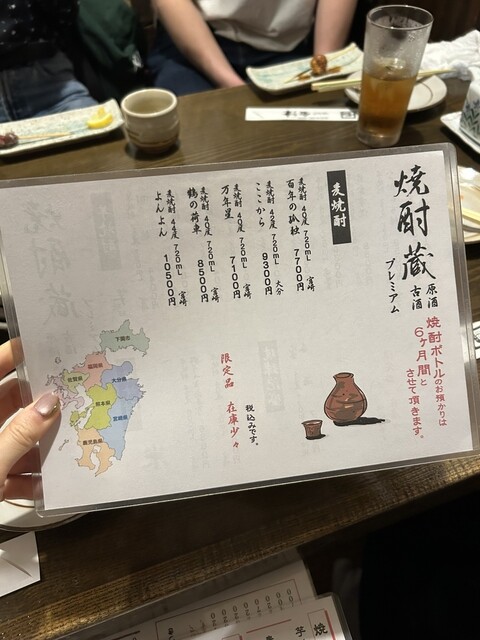 焼酎蔵
原酒
古酒
プレミアム
焼酎ボトルのお預かりは
6ヶ月間と
させて頂きます。
麦焼酎
百年の孤独
麦焼酎 40度 720mL 宮崎
7700円
ここから
麦焼酎 42度 720mL 大分
9300円
万年星
麦焼酎 40度 720mL 宮崎
7100円
鶴の荷車
麦焼酎 40度 720mL 宮崎
8500円
よんよん
麦焼酎 44度 720mL 宮崎
10500円
税込みです。
限定品 在庫少々
下関市
福岡県
佐賀県
大分県
熊本県
宮崎県
鹿児島県
焼
芋